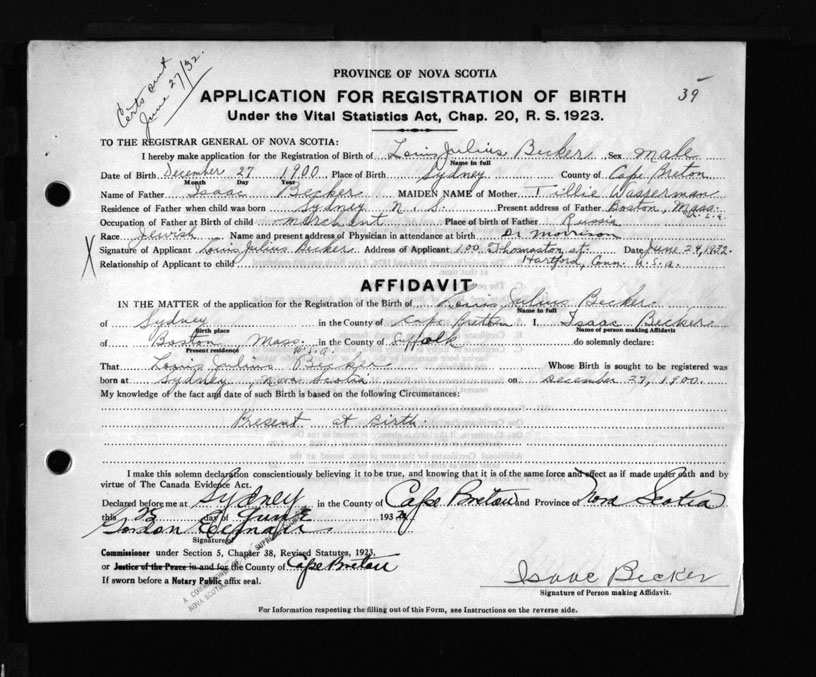 Certs sent
June 27/32.
39
PROVINCE OF NOVA SCOTIA
APPLICATION FOR REGISTRATION OF BIRTH
Under the Vital Statistics Act, Chap. 20, R. S. 1923.
TO THE REGISTRAR GENERAL OF NOVA SCOTIA:
I hereby make application for the Registration of Birth of Louis Julius Becker Sex male
Name in full
Date of Birth December 27 1900 Place of Birth Sydney County of Cape Breton
Month Day Year
Name of Father Isaac Becker MAIDEN NAME of Mother Tillie Wasserman
Residence of Father when child was born Sydney N.S. Present address of Father Boston, Mass. U.S.A.
Occupation of Father at Birth of child merchant Place of birth of Father Russia
Race Jewish Name and present address of Physician in attendance at birth Dr Morrison
X Signature of Applicant Louis Julius Becker Address of Applicant 100 Thomaston st. Date June 24, 1932.
Relationship of Applicant to child Hartford, Conn. U.S.A.
AFFIDAVIT
IN THE MATTER of the application for the Registration of the Birth of Louis Julius Becker
Name in full
of Sydney in the County of Cape Breton I, Isaac Becker
Birth place Name of person making Affidavit
of Boston Mass. U.S.A. in the County of Suffolk do solemnly declare:
Present residence
That Louis Julius Becker Whose Birth is sought to be registered was
born at Sydney, Nova Scotia on December 27, 1900.
My knowledge of the fact and date of such Birth is based on the following Circumstances:
Present at birth.
I make this solemn declaration conscientiously believing it to be true, and knowing that it is of the same force and effect as if made under oath and by
virtue of The Canada Evidence Act.
Declared before me at Sydney in the County of Cape Breton and Province of Nova Scotia
this day of June 193
Gordon
Signature
Commissioner under Section 5, Chapter 38, Revised Statutes, 1923,
or Justice of the Peace in and for the County of Cape Breton
If sworn before a Notary Public affix seal.
Isaac Becker
Signature of Person making Affidavit.
For Information respecting the filling out of this Form, see Instructions on the reverse side.